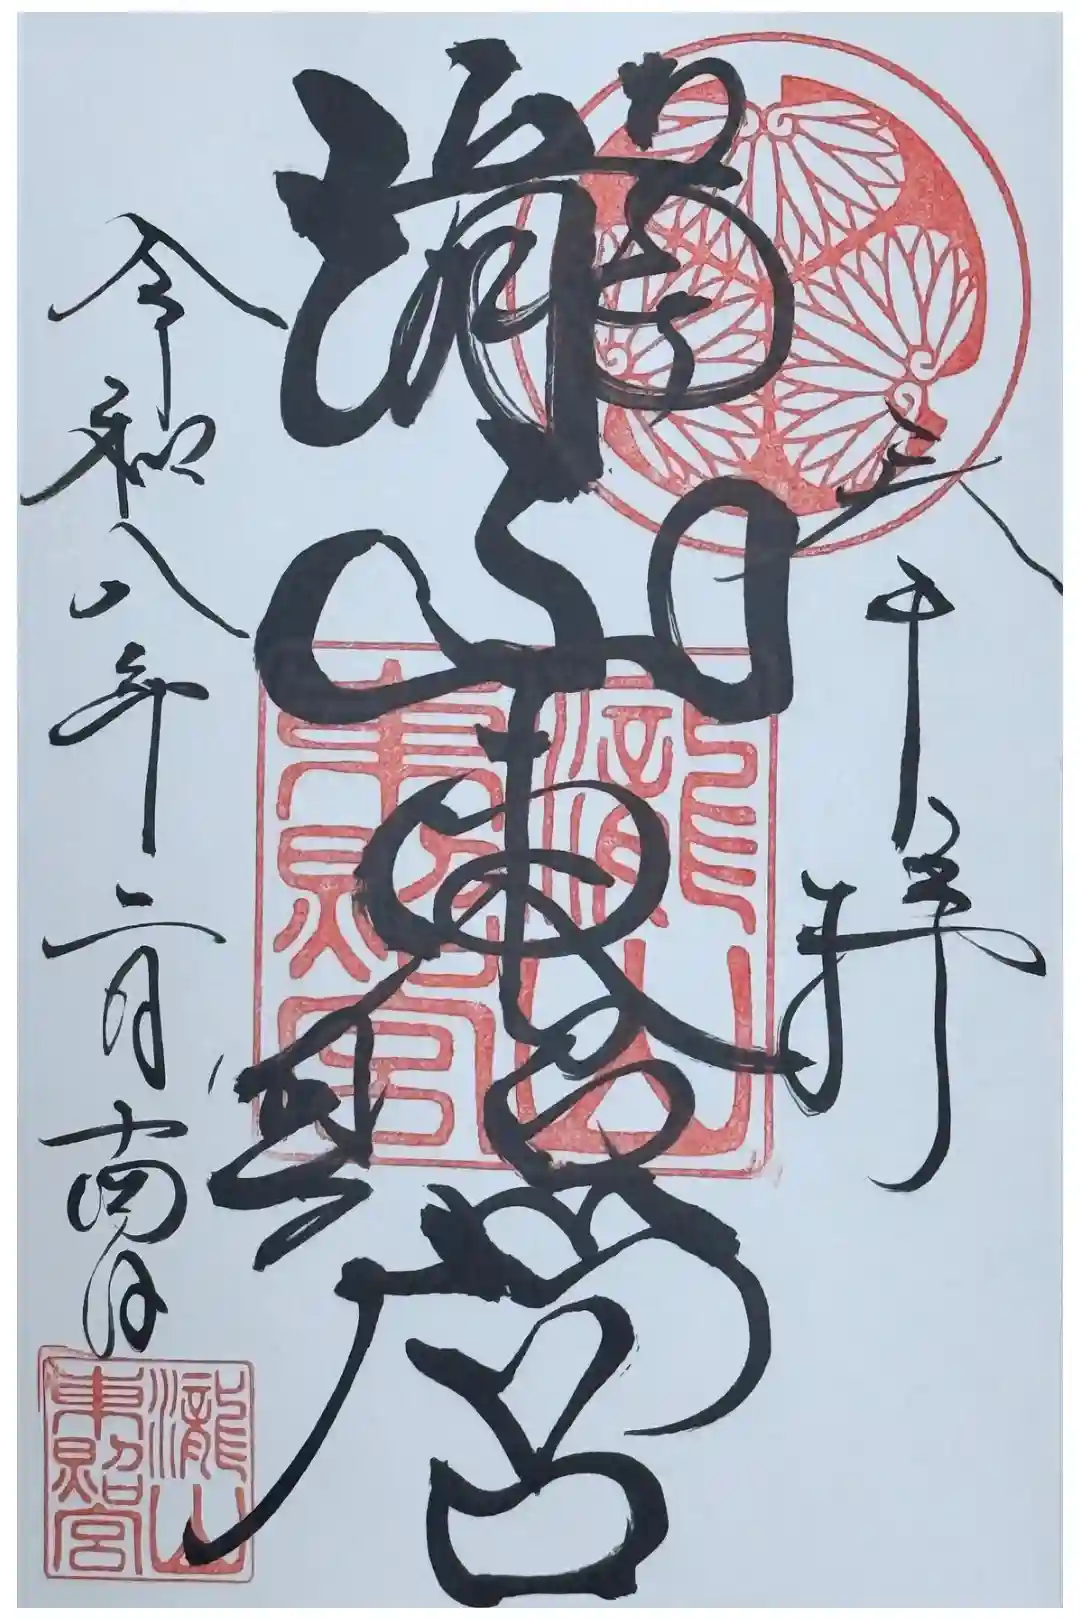 奉拝
瀧山東照宮
令和八年二月十四日
瀧山
東照宮
瀧山
東照宮